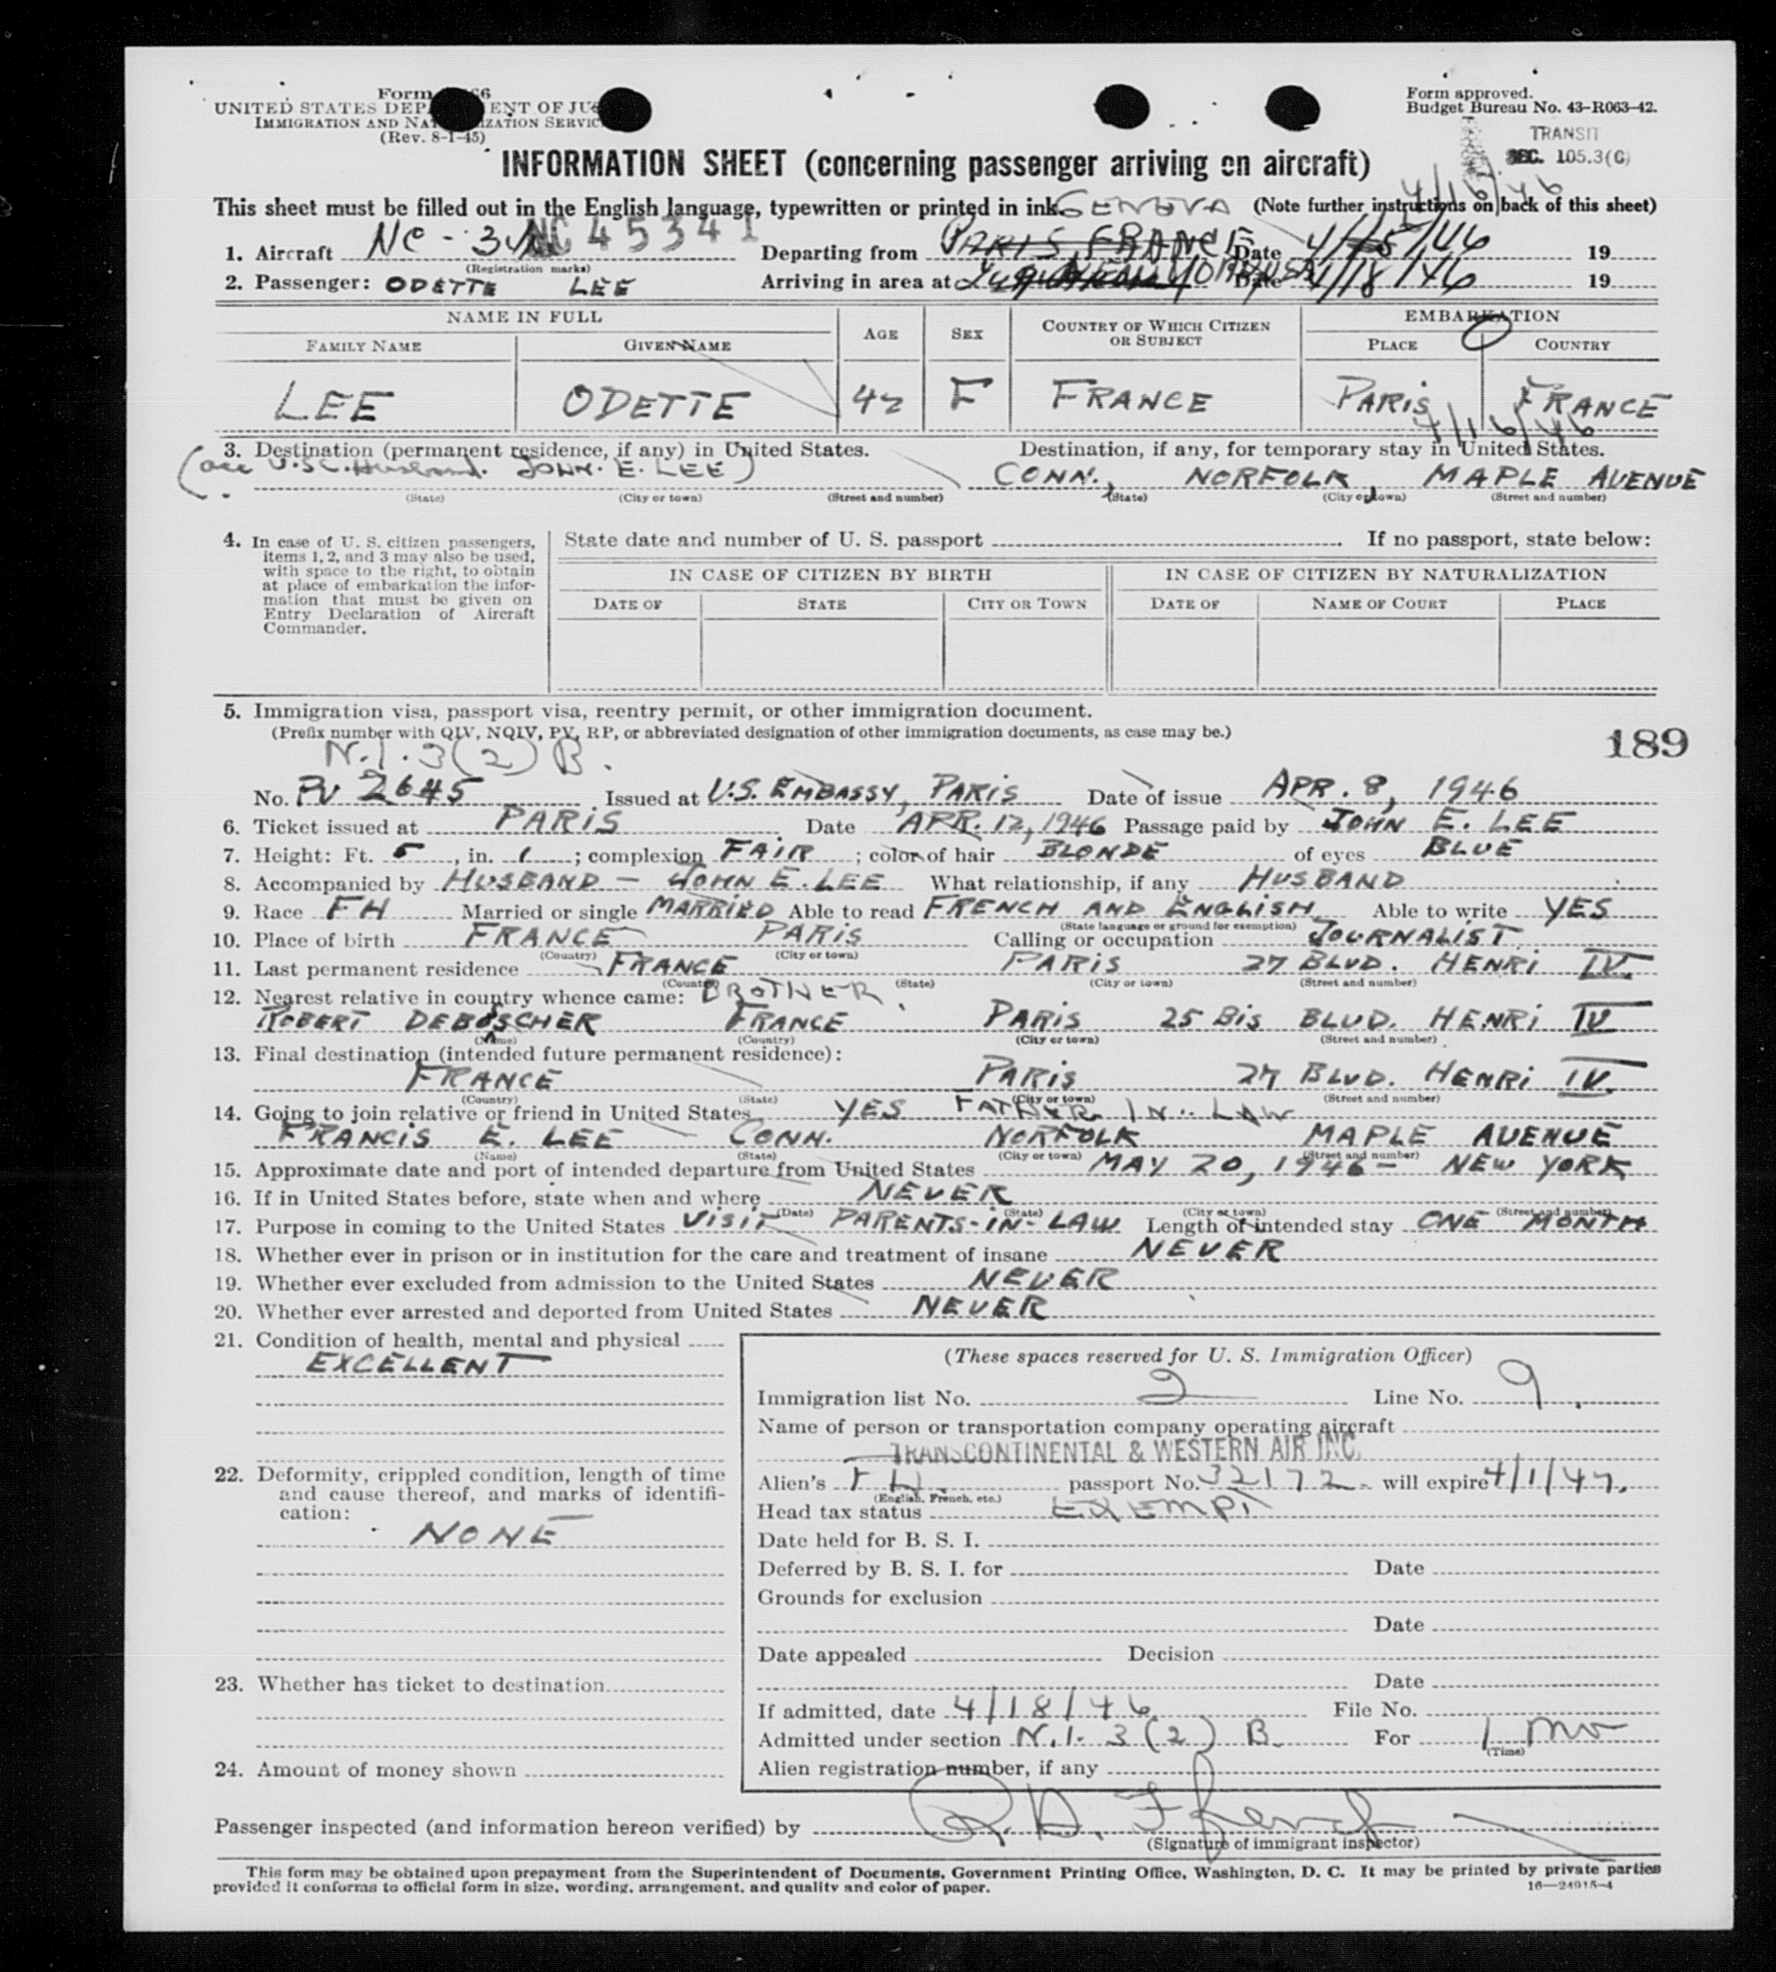 Form
UNITED STATES DEP ENT OF JU
IMMIGRATION AND NA IZATION SERVIC
(Rev. 8-1-45)
Form approved.
Budget Bureau No. 43-R063-42.
TRANSIT
SEC. 105.3(C)
INFORMATION SHEET (concerning passenger arriving on aircraft)
4/16/46
This sheet must be filled out in the English language, typewritten or printed in ink. GENEVA (Note further instructions on back of this sheet)
1. Aircraft NC - 3 NC 45341 Departing from PARIS, FRANCE Date 4/15/46 19
(Registration marks)
2. Passenger: ODETTE LEE Arriving in area at Date 4/18/46 19
NAME IN FULL AGE SEX COUNTRY OF WHICH CITIZEN OR SUBJECT EMBARKATION
FAMILY NAME GIVEN NAME PLACE COUNTRY
LEE ODETTE 42 F FRANCE PARIS FRANCE
4/16/46
3. Destination (permanent residence, if any) in United States. Destination, if any, for temporary stay in United States.
(acc U.S.C. Husband. JOHN. E. LEE) CONN., NORFOLK, MAPLE AVENUE
(State) (City or town) (Street and number) (State) (City or town) (Street and number)
4. In case of U. S. citizen passengers, items 1, 2, and 3 may also be used, with space to the right, to obtain at place of embarkation the information that must be given on Entry Declaration of Aircraft Commander.
State date and number of U. S. passport If no passport, state below:
IN CASE OF CITIZEN BY BIRTH IN CASE OF CITIZEN BY NATURALIZATION
DATE OF STATE CITY OR TOWN DATE OF NAME OF COURT PLACE
5. Immigration visa, passport visa, reentry permit, or other immigration document.
(Prefix number with QIV, NQIV, PV, RP, or abbreviated designation of other immigration documents, as case may be.)
189
N.I. 3(2) B.
No. PV 2645 Issued at U.S. EMBASSY, PARIS Date of issue APR. 8, 1946
6. Ticket issued at PARIS Date APR. 12, 1946 Passage paid by JOHN E. LEE
7. Height: Ft. 5, in. 1; complexion FAIR; color of hair BLONDE of eyes BLUE
8. Accompanied by HUSBAND - JOHN E. LEE What relationship, if any HUSBAND
9. Race FH Married or single MARRIED Able to read FRENCH AND ENGLISH Able to write YES
(State language or ground for exemption)
10. Place of birth FRANCE PARIS Calling or occupation JOURNALIST
(Country) (City or town)
11. Last permanent residence FRANCE PARIS 27 BLVD. HENRI IV
(Country) (State) (City or town) (Street and number)
12. Nearest relative in country whence came: BROTHER.
ROBERT DEBOSCHER FRANCE PARIS 25 Bis BLVD. HENRI IV
(Name) (Country) (City or town) (Street and number)
13. Final destination (intended future permanent residence):
FRANCE PARIS 27 BLVD. HENRI IV.
(Country) (State) (City or town) (Street and number)
14. Going to join relative or friend in United States YES FATHER IN-LAW
FRANCIS E. LEE CONN. NORFOLK MAPLE AVENUE
(Name) (State) (City or town) (Street and number)
15. Approximate date and port of intended departure from United States MAY 20, 1946 - NEW YORK
16. If in United States before, state when and where NEVER
(Date) (State) (City or town) (Street and number)
17. Purpose in coming to the United States VISIT PARENTS-IN-LAW Length of intended stay ONE MONTH
18. Whether ever in prison or in institution for the care and treatment of insane NEVER
19. Whether ever excluded from admission to the United States NEVER
20. Whether ever arrested and deported from United States NEVER
21. Condition of health, mental and physical
EXCELLENT
22. Deformity, crippled condition, length of time and cause thereof, and marks of identification:
NONE
23. Whether has ticket to destination
24. Amount of money shown
(These spaces reserved for U. S. Immigration Officer)
Immigration list No. 2 Line No. 9.
Name of person or transportation company operating aircraft
TRANSCONTINENTAL & WESTERN AIR INC.
Alien's FH passport No. 32172 - will expire 4/1/47.
(English, French, etc.)
Head tax status EXEMPT
Date held for B. S. I.
Deferred by B. S. I. for Date
Grounds for exclusion
Date
Date appealed Decision
Date
If admitted, date 4/18/46 File No.
Admitted under section N.I. 3(2) B. For 1 mo
(Time)
Alien registration number, if any
Passenger inspected (and information hereon verified) by R. D. Ffrench
(Signature of immigrant inspector)
This form may be obtained upon prepayment from the Superintendent of Documents, Government Printing Office, Washington, D. C. It may be printed by private parties
provided it conforms to official form in size, wording, arrangement, and quality and color of paper.
16—24915-4